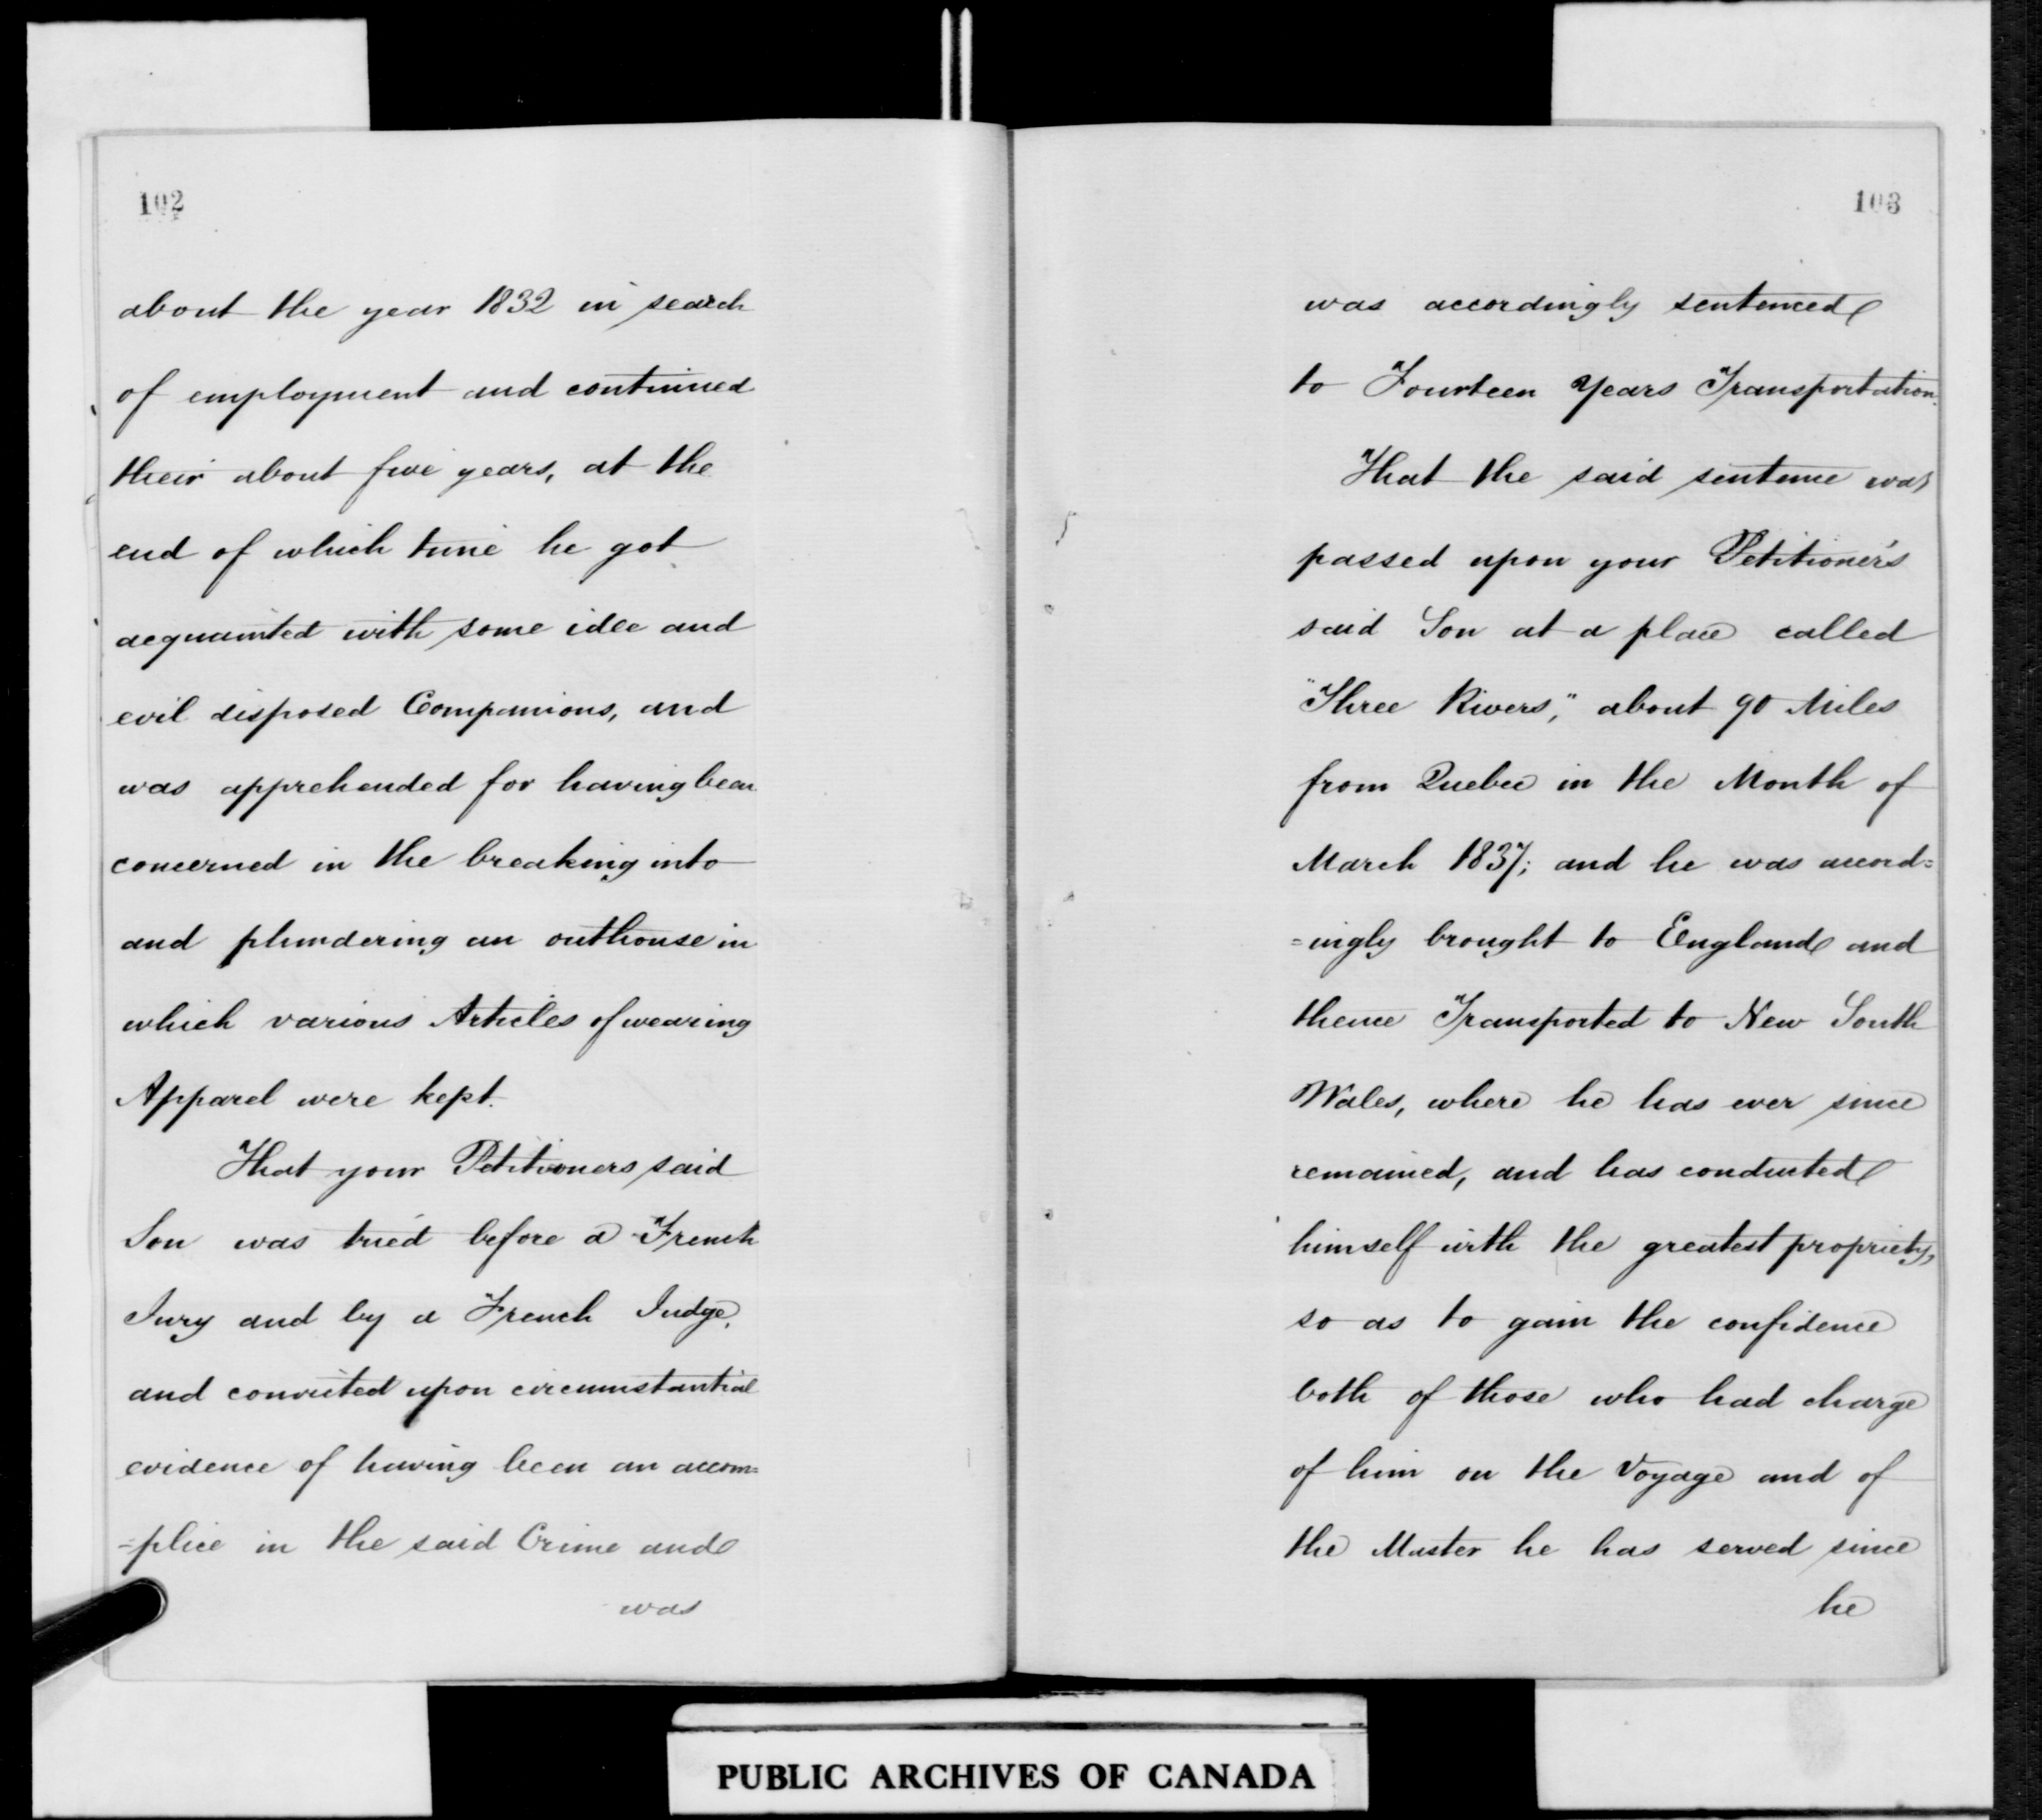 102
about the year 1832 in search
of employment and continued
their about five years, at the
end of which time he got
acquainted with some idle and
evil disposed Companions, and
was apprehended for having been
concerned in the breaking into
and plundering an outhouse in
which various Articles of wearing
Apparel were kept.
That your Petitioners said
Son was tried before a French
Jury and by a French Judge,
and convicted upon circumstantial
evidence of having been an accom=
=plice in the said Crime and
was
103
was accordingly sentenced
to Fourteen Years Transportation.
That the said sentence was
passed upon your Petitioner's
said Son at a place called
"Three Rivers," about 90 Miles
from Quebec in the Month of
March 1837; and he was accord=
=ingly brought to England and
thence Transported to New South
Wales, where he has ever since
remained, and has conducted
himself with the greatest propriety,
so as to gain the confidence
both of those who had charge
of him on the Voyage and of
the Master he has served since
he
PUBLIC ARCHIVES OF CANADA